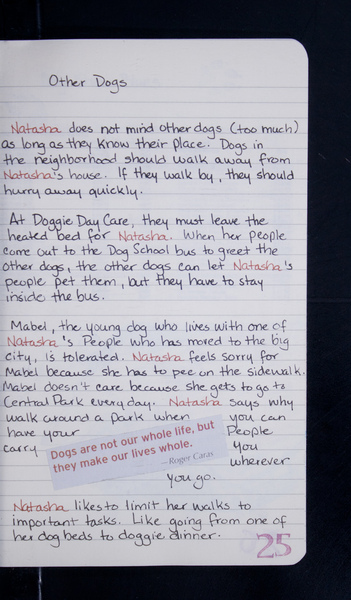 Other Dogs
Natasha does not mind other dogs (too much)
as long as they know their place. Dogs in
the neighborhood should walk away from
Natasha's house. If they walk by, they should
hurry away quickly.
At Doggie Day Care, they must leave the
heated bed for Natasha. When her people
come out to the Dog School bus to greet the
other dogs, the other dogs can let Natasha's
people pet them, but they have to stay
inside the bus.
Mabel, the young dog who lives with one of
Natasha's People who has moved to the big
city, is tolerated. Natasha feels sorry for
Mabel because she has to pee on the sidewalk.
Mabel doesn't care because she gets to go to
Central Park every day. Natasha says why
walk around a park when you can
have your People
carry you
wherever
you go.
Dogs are not our whole life, but
they make our lives whole.
—Roger Caras
Natasha likes to limit her walks to
important tasks. Like going from one of
her dog beds to doggie dinner.
25